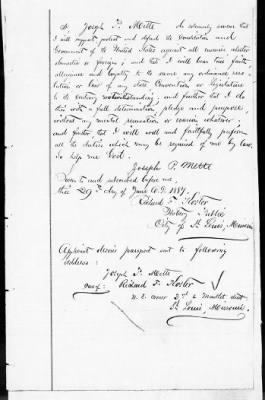 I, Joseph P. Mette do solemnly swear that
I will support, protect and defend the Constitution and
Government of the United States against all enemies whether
domestic or foreign; and that I will bear true faith,
allegiance and loyalty to the same any ordinance, reso
lution or law of any State, Convention or Legislature
to the contrary notwithstanding; and further that I do
this with a full determination, pledge and purpose,
without any mental reservation or evasion whatever;
and further that I will well and faithfully perform
all the duties which may be required of me by law.
So help me God.
Joseph P. Mette
Sworn to and subscribed before me,
this 29th day of June A.D. 1887.
Richard F.
Notary Public
City of St. Louis, Missouri
Applicant desires passport sent to following
address:
Joseph P. Mette
care of Richard F.
N.E. corner 2nd & Market street
St. Louis, Missouri